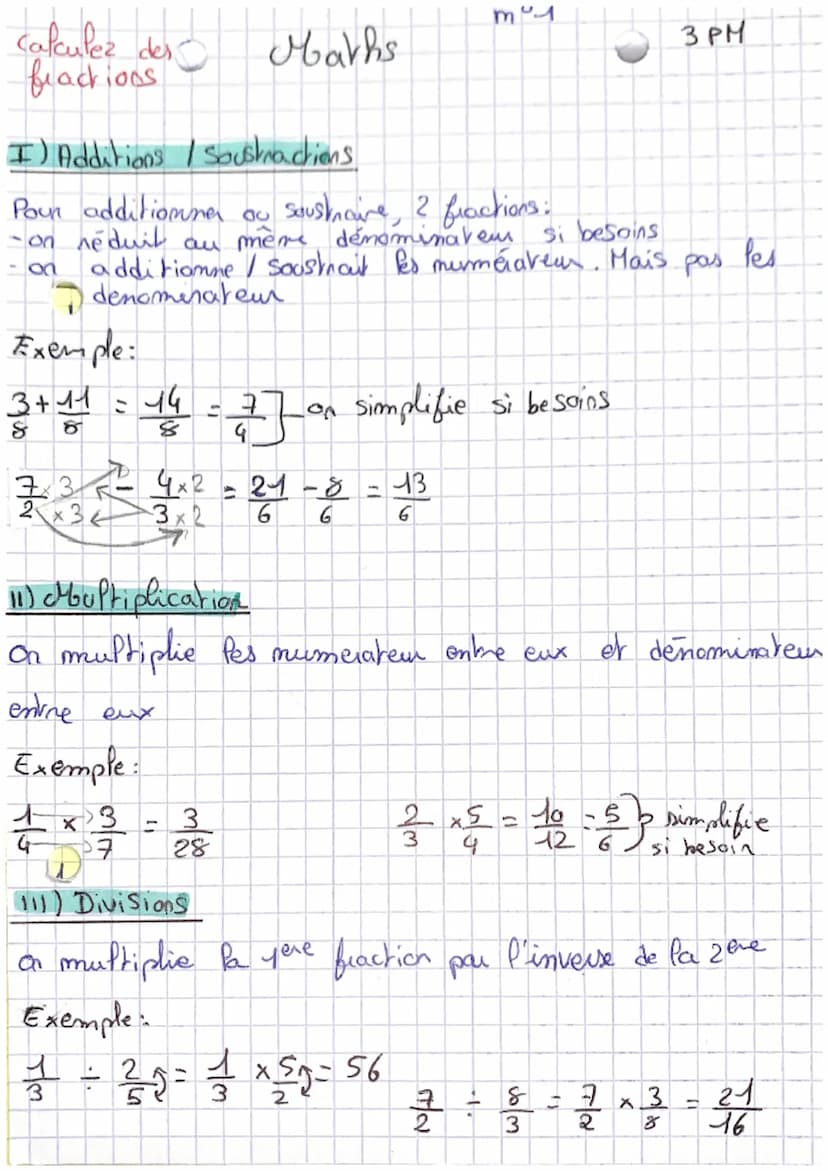 m°1
Calculez des
fractions
Maths
3 PM
I) Additions / Soustractions
Pour additionner ou soustraire, 2 fractions:
- on réduit au même dénominateur si besoins
- on additionne / soustrait les numérateur. Mais pas les
! denominateur
Exemple:
3/8 + 11/8 = 14/8 = 7/4 } on simplifie si besoins
7×3/2×3 - 4×2/3×2 = 21/6 - 8/6 = 13/6
II) Multiplication
On multiplie les numerateur entre eux et dénominateur
entre eux
Exemple:
1/4 × 3/7 = 3/28
2/3 × 5/4 = 10/12 = 5/6 } simplifie
si besoin
!
III) Divisions
On multiplie la 1ere fraction par l'inverse de la 2eme
Exemple:
1/3 ÷ 2/5 = 1/3 × 5/2 = 56
7/2 ÷ 8/3 = 7/2 × 3/8 = 21/16